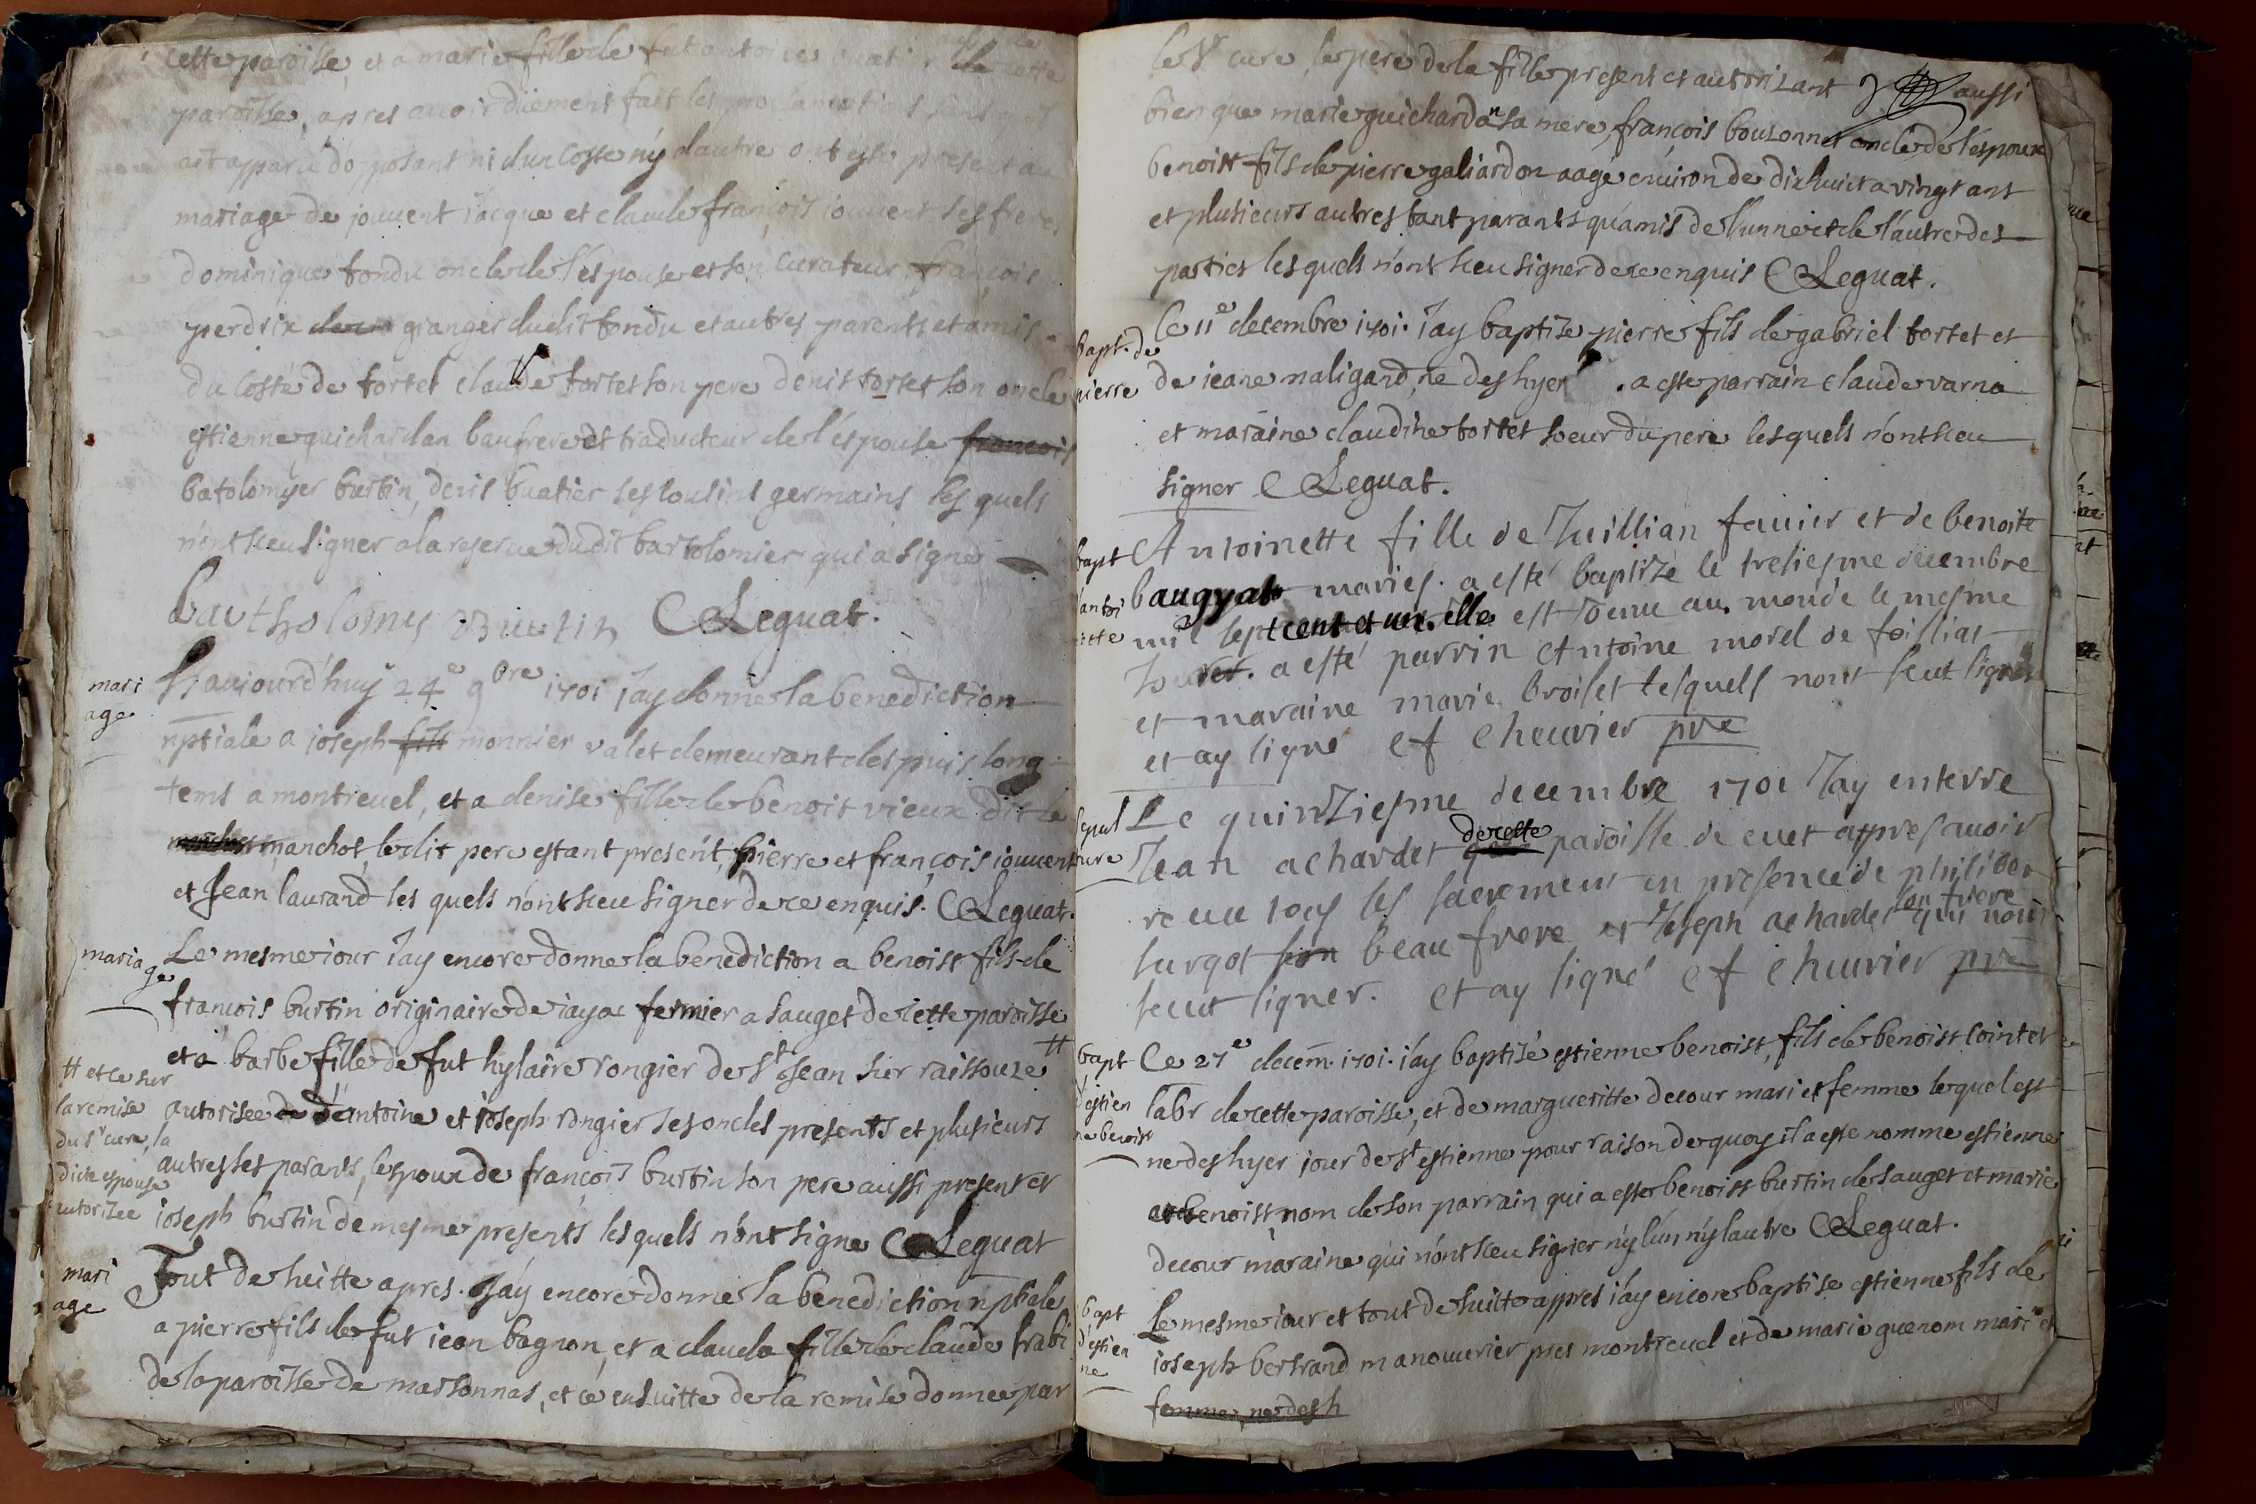 cette paroisse, et a marie fille de fut antoine buatier de cette
paroisse, apres avoir düement fait les proclamations sans
ait apparu d'opposant ni d'un coste ny d'autre ont esté present au
mariage de jouvent jacque et claude françois jouvent ses freres
dominique tondu oncle de l'espouse et son curateur, françois
perdrix granger dudit tondu et autres parents et amis
du costé de tortet claude tortet son pere denis tortet son oncle
estienne guichardan baufrere et traducteur de l'espouse francois
batolomyer burtin, denis buatier ses cousins germains les quels
n'ont sceu signer a la reserve dudit bartolomier qui a signé
bartholomy Burtin CLeguat.
mari
age
h aujourd'huy 24e 9bre 1701 j'ay donné la benediction
nptiale a joseph fils monnier valet demeurant despuis long
tems a montrevel, et a denise fille de benoit vieux dit le
manchot, ledit pere estant present, pierre et françois jouvent
et Jean laurand les quels n'ont sceu signer de ce enquis. CLeguat.
mariage
Le mesme jour j'ay encore donné la benediction a benoist fils de
francois burtin originaire de jaya fermier a sauget de cette paroisse
et a barbe fille de fut hylaire rongier de st Jean sur raissouze #
# et ce sur
la remise
du sr cure, la
dicte espouse
autorizee
autorisee de d'antoine et joseph rongier ses oncles presents et plusieurs
autres ses parants, lespoux de françois burtin son pere aussi present et
joseph burtin de mesme presents les quels n'ont signe CLeguat
mari
age
Tout de suitte apres. J'ay encore donné la benediction nptiale
a pierre fils de fut jean bagnon, et a clauda fille de claude
de la paroisse de marsonnas, et ce ensuitte de la remise donnee par
le sr cure, le pere de la fille present et autorizant aussi
bien que marie guichardon sa mere, françois bouzonnet oncle de l'espoux
benoist fils de pierre galiardon aagé environ de dixhuict a vingt ans
et plusieurs autres tant parants qu'amis de l'unne et de l'autre des
parties les quels n'ont sceu signer de ce enquis CLeguat.
bapt. de
pierre
le 11e decembre 1701. j'ay baptize pierre fils de gabriel tortet et
de jeane maligand, ne des hyer. a esté parrain claude varna
et maraine claudine tortet soeur du pere lesquels n'ont sceu
signer CLeguat.
bapt
d'antoi
nette
Antoinette fille de Juillian favier et de benoite
baugyat mariés. a esté baptizé le treziesme decembre
mil sept cent et un. elle est venue au monde le mesme
Jour. a esté parrin Antoine morel de foissiat
et maraine marie broiset lesquels nont sceut signer
et ay signé C f Chevrier pre
sepul
ture
Le quinziesme decembre 1701 J'ay enterré
Jean achardet de cette paroisse de cuet appres avoir
receu tous les sacrement en presence de philiber
surgot son beau frere et Joseph achardet son frere qui nont
sceut signer. et ay signé C f Chevrier pre
bapt
d'estien
ne benoist
Ce 27e decem. 1701. j'ay baptizé estienne benoist, fils de benoist cointet
labr de cette paroisse, et de margueritte decour mari et femme lequel est
né des hyer jour de st estienne pour raison de quoy il a esté nomme estienne
et benoist nom de son parrain qui a esté benoist burtin de sauget et marie
decour maraine qui n'ont sceu signer ny l'un ny lautre CLeguat.
bapt
d'estien
ne
Le mesme jour et tout de suitte appres j'ay encore baptisé estienne fils de
joseph bertrand manouvrier pres montrevel et de marie guenom mari et
femme, ne des h